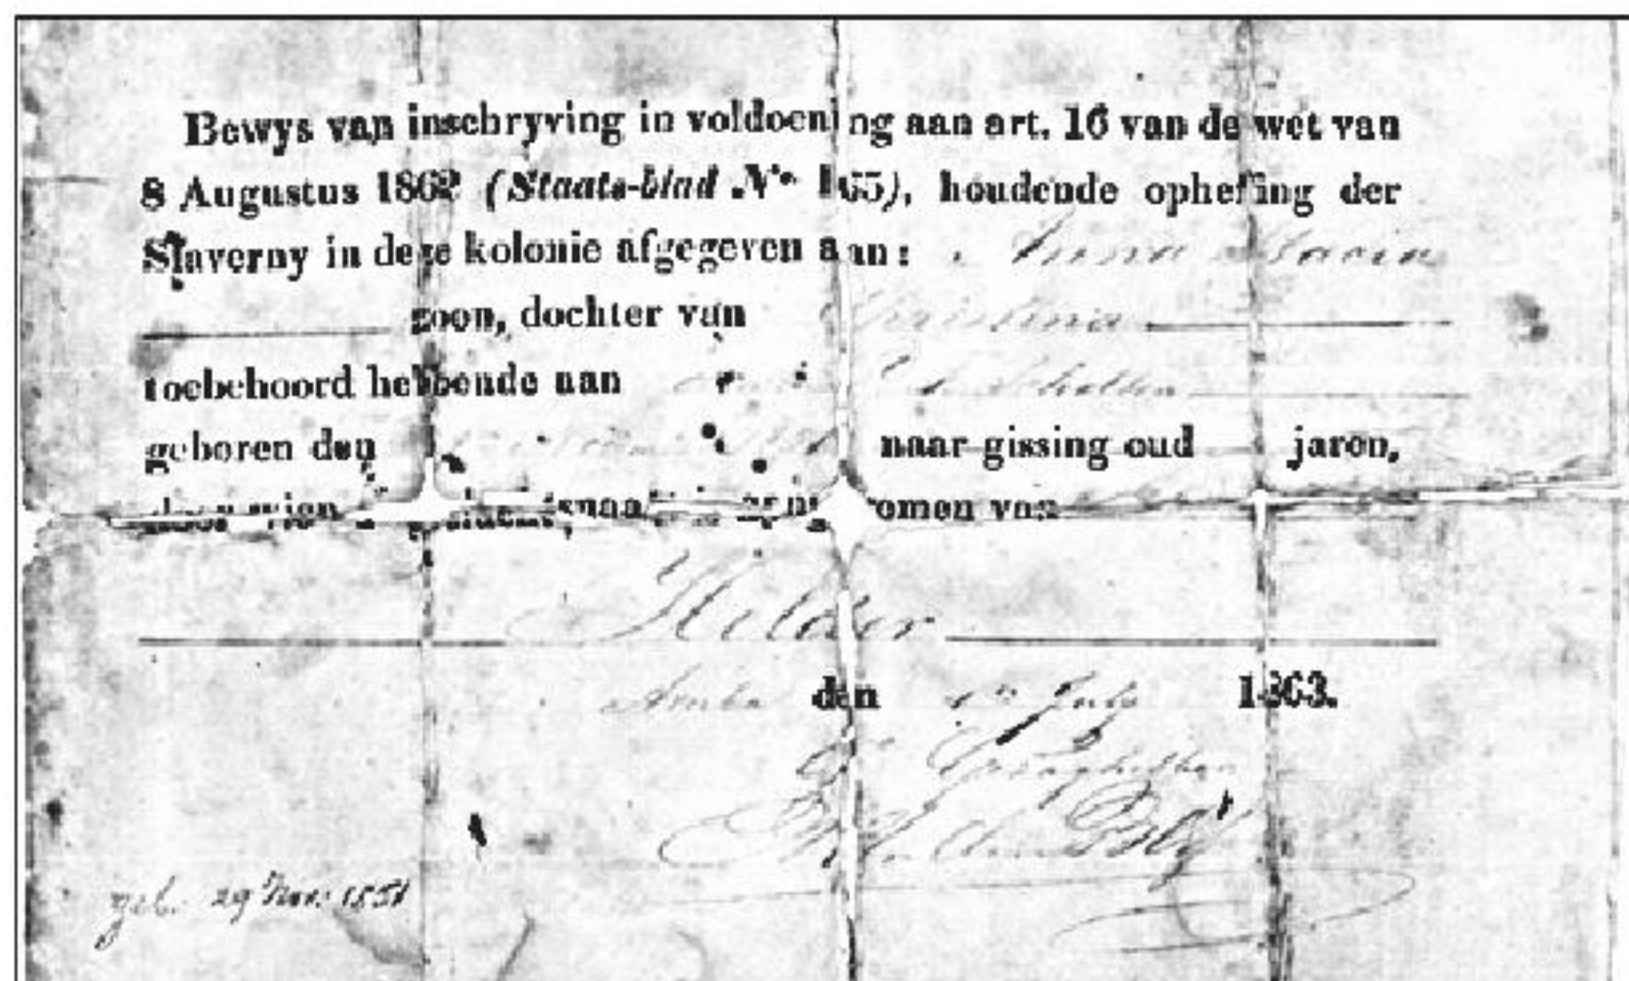 Bewys van inschryving in voldoening aan art. 16 van de wet van
8 Augustus 1862 (Staats-blad No. 165), houdende opheffing der
Slaverny in deze kolonie afgegeven aan: Anna Maria
zoon, dochter van Christina
toebehoord hebbende aan Scholten
geboren den naar gissing oud jaren,
door wien geslachtsnaam is aangenomen van
Helder
Aruba den 1n July 1863.
geb. 29 Nov. 1851